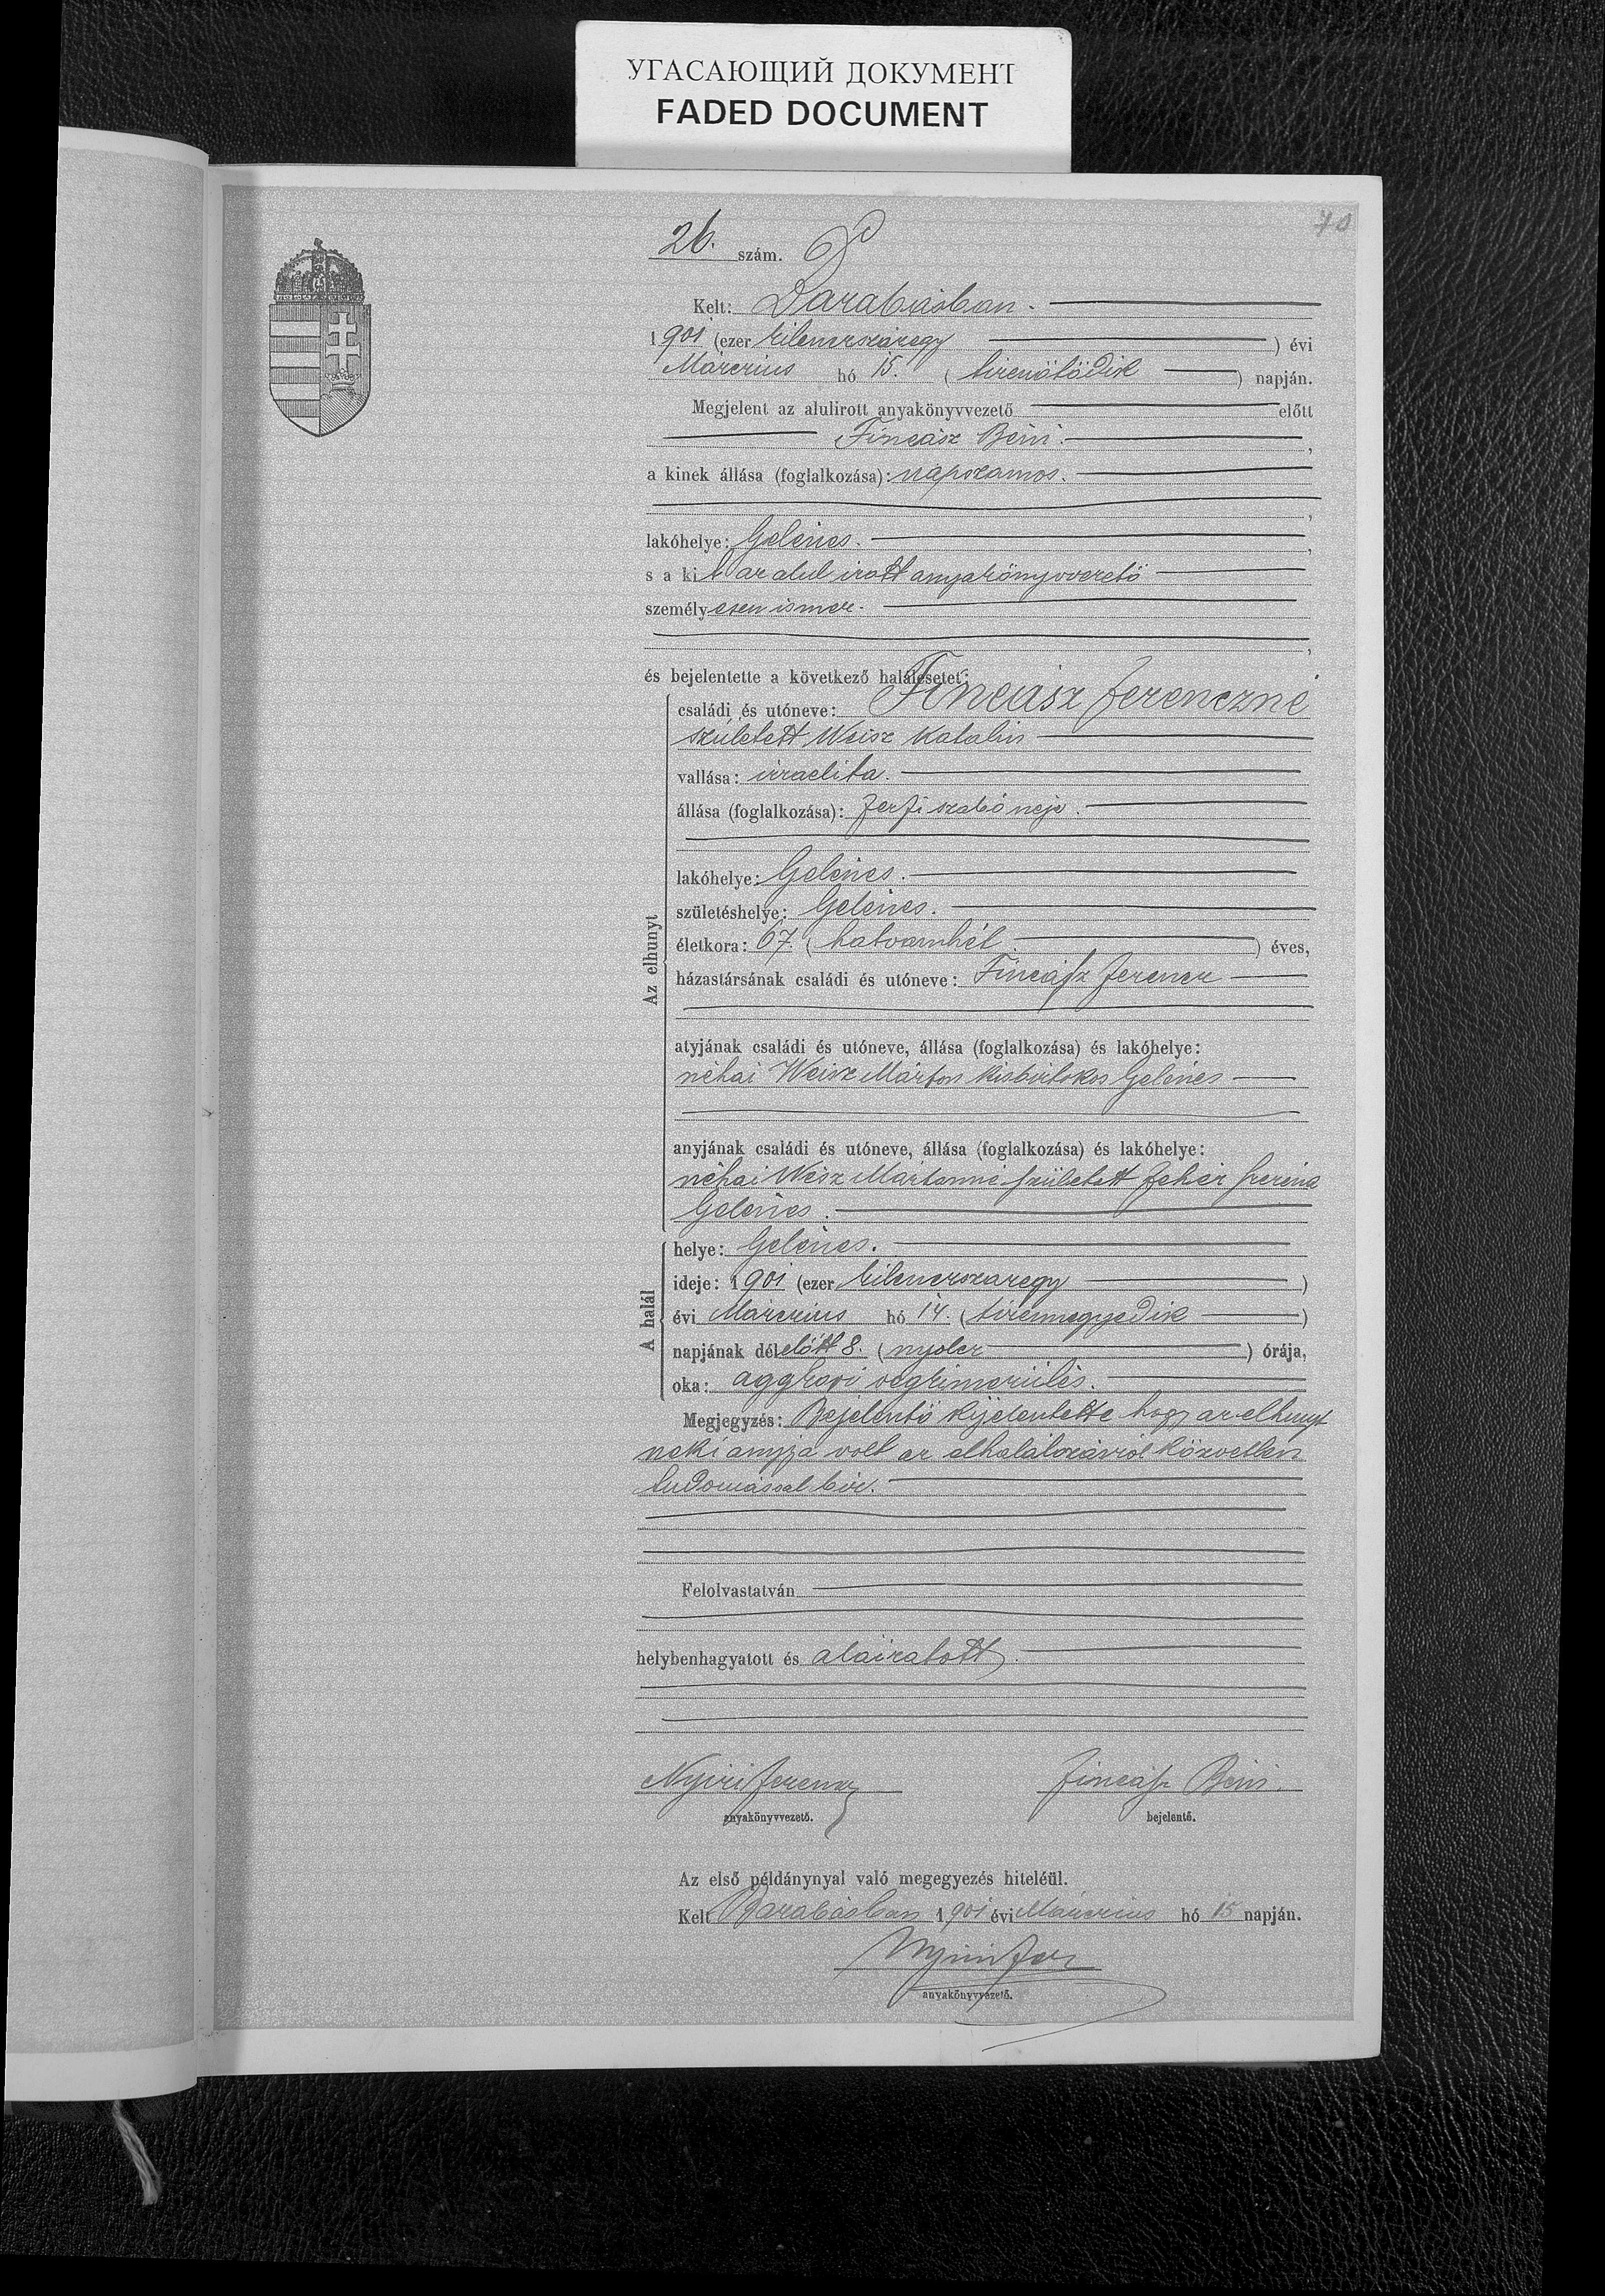 УГАСАЮЩИЙ ДОКУМЕНТ
FADED DOCUMENT
70
26. szám.
Kelt: Barabásban.
1901 (ezer kilenczszázegy ) évi
Márczius hó 15. (tizenötödik ) napján.
Megjelent az alulirott anyakönyvvezető előtt
Fineász Béni.
a kinek állása (foglalkozása): napszamos.
lakóhelye: Gelénes.
s a kit az alul irott anyakönyvvezető
személyesen ismer.
és bejelentette a következő halálesetet:
Az elhunyt
családi és utóneve: Fineász Ferenczné
született Weisz Katalin
vallása: izraelita.
állása (foglalkozása): férfi szabó neje.
lakóhelye: Gelénes.
születéshelye: Gelénes.
életkora: 67. (hatvanhét ) éves,
házastársának családi és utóneve: Fineász Ferencz
atyjának családi és utóneve, állása (foglalkozása) és lakóhelye:
néhai Weisz Márton kisbirtokos Gelénes
anyjának családi és utóneve, állása (foglalkozása) és lakóhelye:
néhai Weisz Mártonné született Fehér
Gelénes.
A halál
helye: Gelénes.
ideje: 1901 (ezer kilenczszazegy )
évi Márczius hó 14. (tizennegyedik )
napjának délelőtt 8. (nyolcz ) órája,
oka: aggkori végkimerülés.
Megjegyzés: Bejelentő kijelentette hogy az elhunyt
neki anyja volt az elhalálozásról közvetlen
tudomással bir.
Felolvastatván
helybenhagyatott és aláiratott.
Nyiri Ferencz Fineász Béni.
anyakönyvvezető. bejelentő.
Az első példánynyal való megegyezés hiteléül.
Kelt Barabásban 1901 évi Márczius hó 15 napján.
Nyiri Fer
anyakönyvvezető.